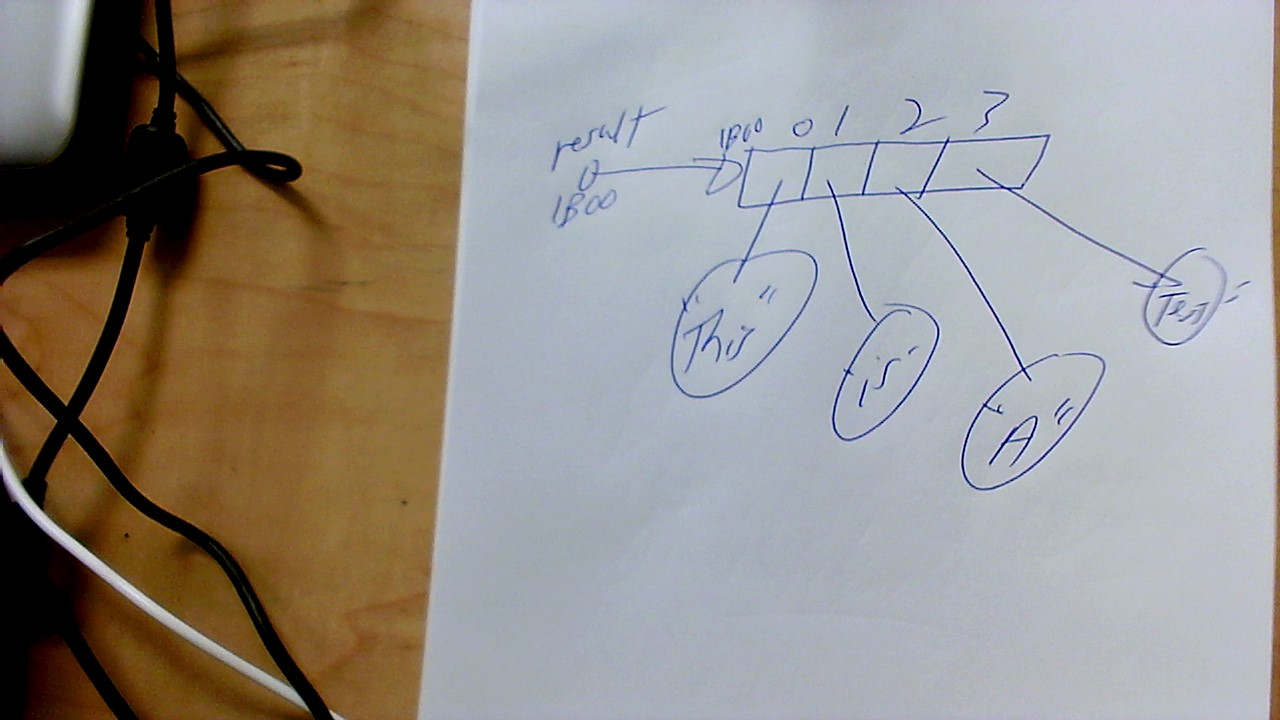 result
1B00
1B00 0 1 2 3
"This"
"is"
"A"
"Test"